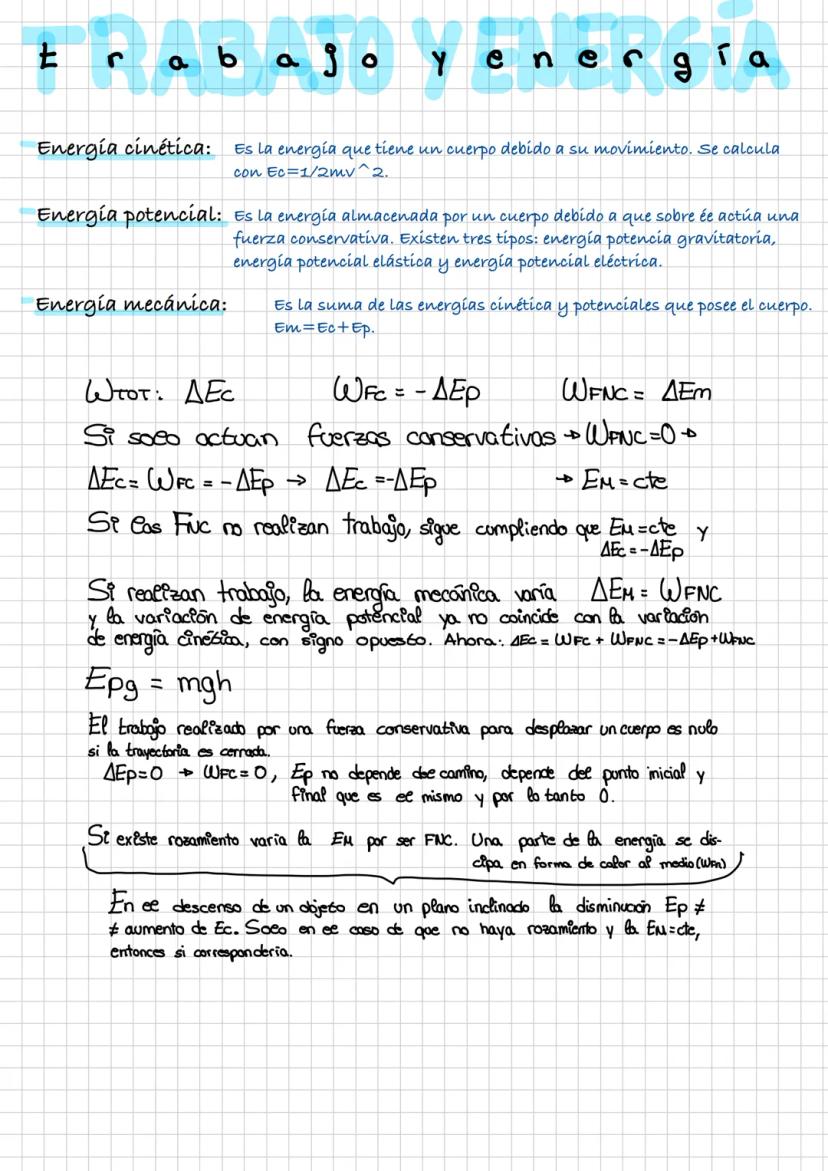 TRABAJO Y ENERGÍA
trabajo y energía
Energía cinética: Es la energía que tiene un cuerpo debido a su movimiento. Se calcula
con Ec=1/2mv^2.
Energía potencial: Es la energía almacenada por un cuerpo debido a que sobre ée actúa una
fuerza conservativa. Existen tres tipos: energía potencia gravitatoria,
energía potencial elástica y energía potencial eléctrica.
Energía mecánica: Es la suma de las energías cinética y potenciales que posee el cuerpo.
Em=Ec+Ep.
WTOT: ΔEc WFc = -ΔEp WFNC = ΔEm
Si solo actuan fuerzas conservativas → WFNC=0 →
ΔEc = WFC = -ΔEp → ΔEc = -ΔEp → EM = cte
Si las FNC no realizan trabajo, sigue cumpliendo que EM = cte y
ΔEc = -ΔEp
Si realizan trabajo, la energía mecánica varía ΔEM = WFNC
y la variación de energía potencial ya no coincide con la variación
de energía cinética, con signo opuesto. Ahora: ΔEc = WFC + WFNC = -ΔEp + WFNC
Epg = mgh
El trabajo realizado por una fuerza conservativa para desplazar un cuerpo es nulo
si la trayectoria es cerrada.
ΔEp=0 → WFC = 0, Ep no depende del camino, depende del punto inicial y
final que es el mismo y por lo tanto 0.
Si existe rozamiento varía la EM por ser FNC. Una parte de la energía se dis-
cipa en forma de calor al medio (WFR)
En el descenso de un objeto en un plano inclinado la disminución Ep ≠
≠ aumento de Ec. Solo en el caso de que no haya rozamiento y la EM=cte,
entonces si correspondería.